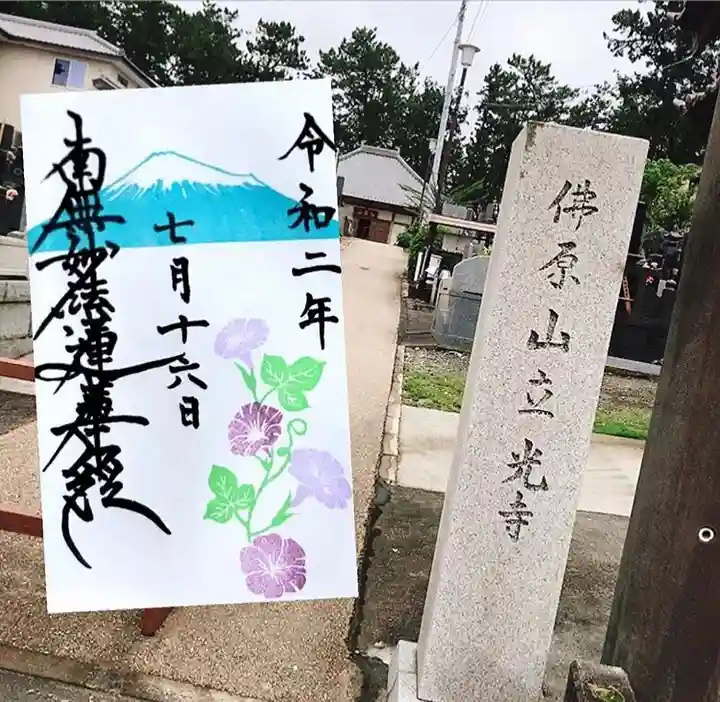 令和二年
七月十六日
南無妙法蓮華経
佛原山立光寺